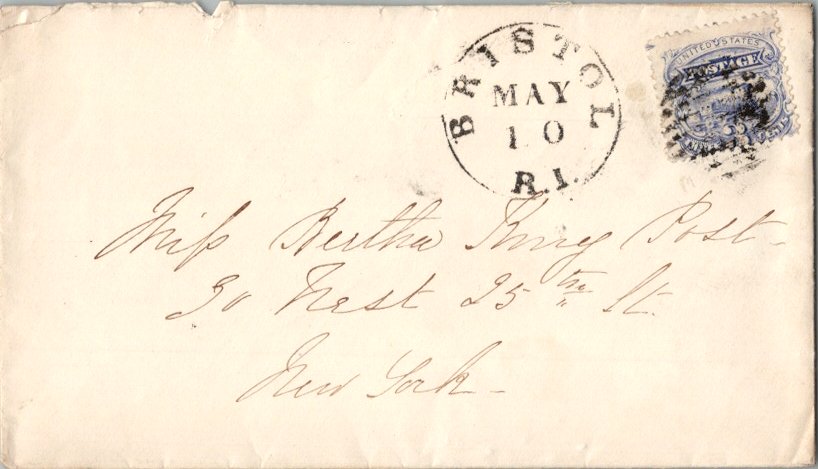 BRISTOL
MAY
10
R.I.
UNITED STATES
POSTAGE
Miss Bertha King Post-
30 West 25th St.
New York-